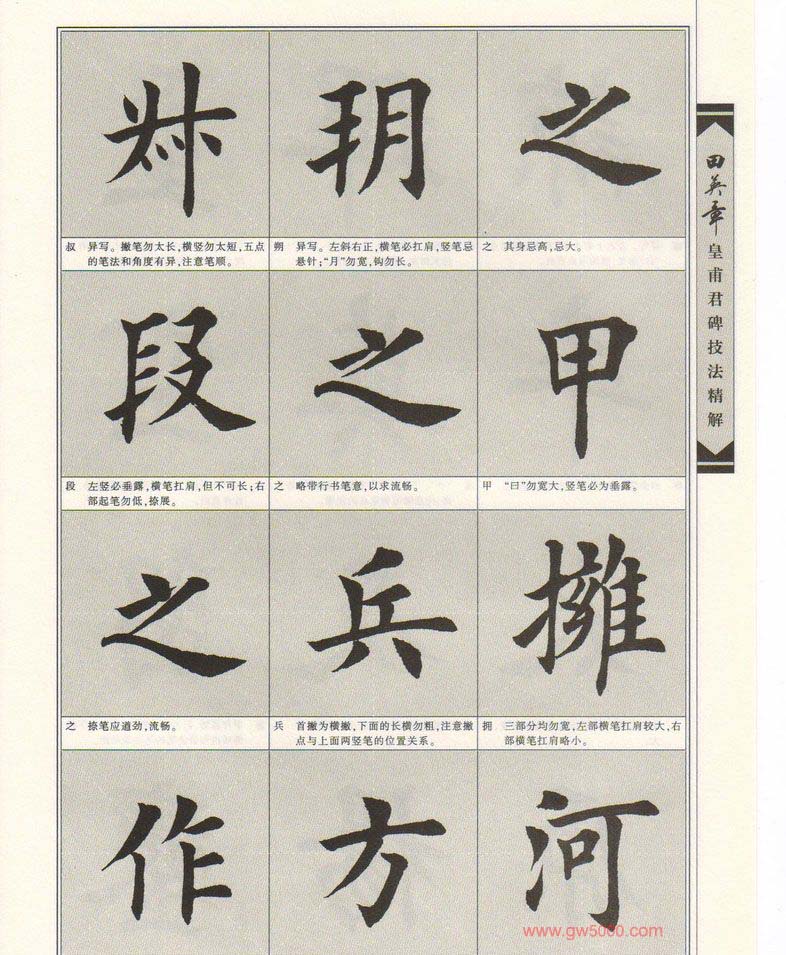 叔 玥 之
叔 异写。撇笔勿太长，横竖勿太短，五点
的笔法和角度有异，注意笔顺。
朔 异写。左斜右正，横笔必扛肩，竖笔忌
悬针；“月”勿宽，钩勿长。
之 其身忌高，忌大。
段 之 甲
段 左竖必垂露，横笔扛肩，但不可长；右
部起笔勿低，捺展。
之 略带行书笔意，以求流畅。
甲 “曰”勿宽大，竖笔必为垂露。
之 兵 擁
之 捺笔应遒劲，流畅。
兵 首撇为横撇，下面的长横勿粗，注意撇
点与上面两竖笔的位置关系。
拥 三部分均勿宽，左部横笔扛肩较大，右
部横笔扛肩略小。
作 方 河
田英章皇甫君碑技法精解
www.gw5000.com